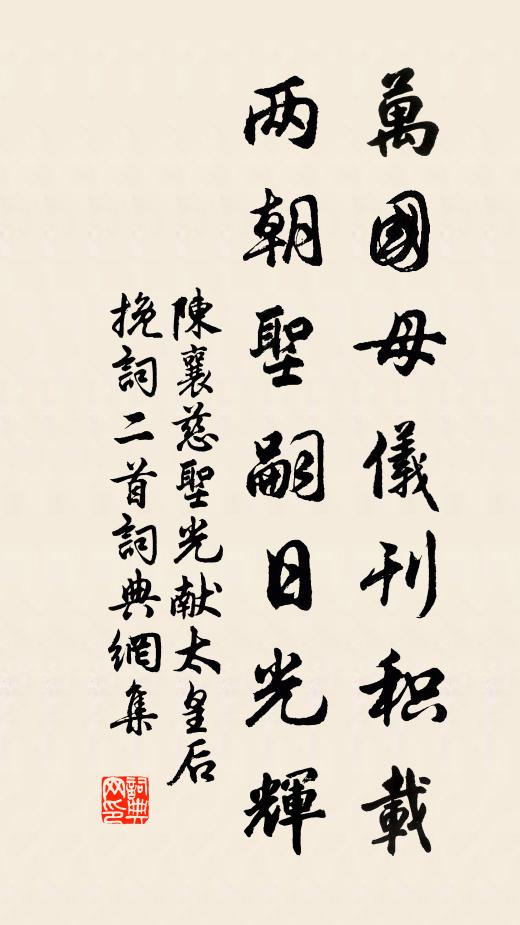 萬國母儀刊积載
两朝聖嗣日光輝
陳襄慈聖光献太皇后
挽詞二首詞典網集
詞典网印